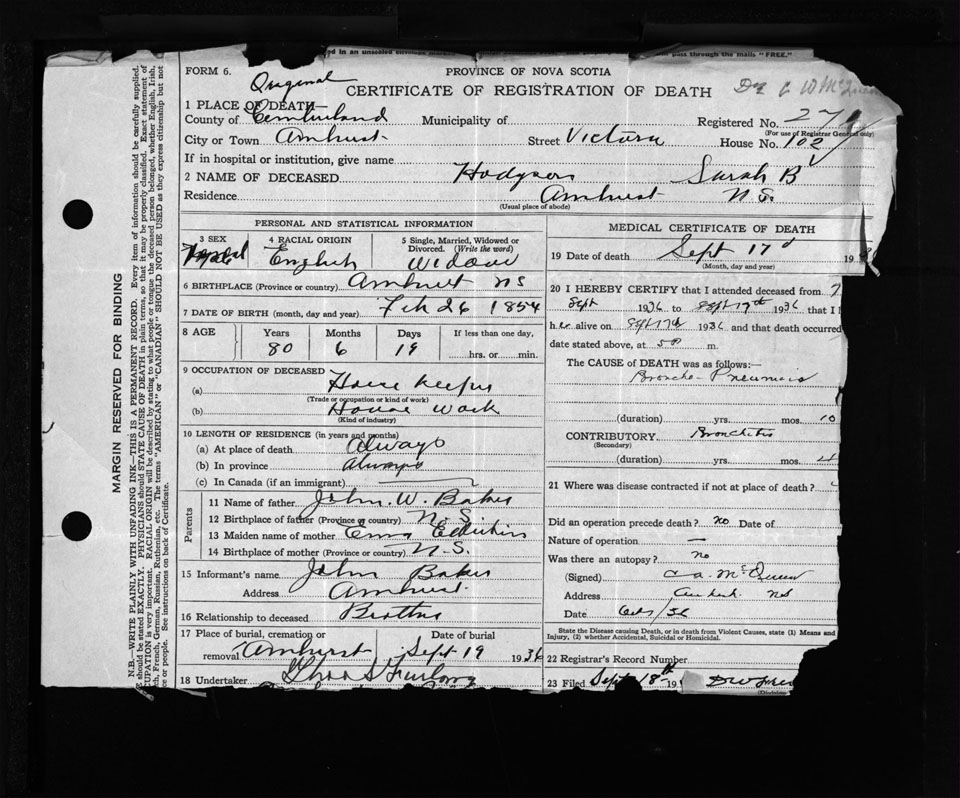 ed in an unsealed envelope
pass through the mails "FREE."
FORM 6.
PROVINCE OF NOVA SCOTIA
Original
CERTIFICATE OF REGISTRATION OF DEATH
1 PLACE OF DEATH—
County of Cumberland Municipality of Registered No. 27
(For use of Registrar General only)
City or Town Amherst Street Victoria House No. 102
If in hospital or institution, give name
2 NAME OF DECEASED Hodgson Sarah B
Residence Amherst N.S.
(Usual place of abode)
PERSONAL AND STATISTICAL INFORMATION
3 SEX 4 RACIAL ORIGIN 5 Single, Married, Widowed or Divorced. (Write the word)
English Widow
6 BIRTHPLACE (Province or country) Amherst NS
7 DATE OF BIRTH (month, day and year) Feb 26 1854
8 AGE Years Months Days If less than one day,
80 6 19 hrs. or min.
9 OCCUPATION OF DECEASED
(a) House keeper
(Trade or occupation or kind of work)
(b) House work
(Kind of industry)
10 LENGTH OF RESIDENCE (in years and months)
(a) At place of death Always
(b) In province Always
(c) In Canada (if an immigrant)
Parents
11 Name of father John W. Baker
12 Birthplace of father (Province or country) N.S.
13 Maiden name of mother
14 Birthplace of mother (Province or country) N.S.
15 Informant's name John Baker
Address Amherst
16 Relationship to deceased Brother
17 Place of burial, cremation or removal Amherst Date of burial Sept 19 1936
18 Undertaker Thos S Furlong
MEDICAL CERTIFICATE OF DEATH
19 Date of death Sept 17
(Month, day and year)
20 I HEREBY CERTIFY that I attended deceased from 7
Sept 1936 to Sept 17th 1936 that I l
h er alive on Sept 17th 1936 and that death occurred
date stated above, at 5 P m.
The CAUSE of DEATH was as follows:
Broncho-Pneumonia
(duration) yrs. mos. 10
CONTRIBUTORY Bronchitis
(Secondary)
(duration) yrs. mos.
21 Where was disease contracted if not at place of death?
Did an operation precede death? no Date of
Nature of operation —
Was there an autopsy? no
(Signed) McQueen
Address Amherst NS
Date
State the Disease causing Death, or in death from Violent Causes, state (1) Means and
Injury, (2) whether Accidental, Suicidal or Homicidal.
22 Registrar's Record Number
23 Filed Sept 18th 19
MARGIN RESERVED FOR BINDING
N.B.—WRITE PLAINLY WITH UNFADING INK—THIS IS A PERMANENT RECORD. Every item of information should be carefully supplied.
E should be stated EXACTLY. PHYSICIANS should STATE CAUSE OF DEATH in plain terms, so that it may be properly classified. Exact statement of
CUPATION is very important. RACIAL ORIGIN will be described by stating to what people or tongue the deceased person belonged, whether English, Irish,
tch, French, German, Russian, Ruthenian, etc. The terms "AMERICAN" or "CANADIAN" SHOULD NOT BE USED as they express citizenship but not
ce or people. See instructions on back of Certificate.